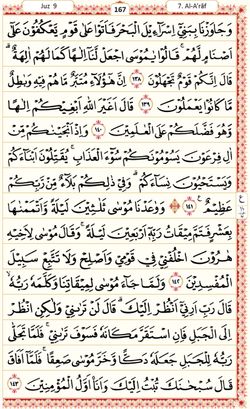 Juz 9
167
7. Al-A'râf
وَجَاوَزْنَا بِبَنِيْٓ اِسْرَآءِيْلَ الْبَحْرَ فَاَتَوْا عَلٰى قَوْمٍ يَّعْكُفُوْنَ عَلٰٓى
اَصْنَامٍ لَّهُمْ ۚ قَالُوْا يٰمُوْسَى اجْعَلْ لَّنَآ اِلٰهًا كَمَا لَهُمْ اٰلِهَةٌ ۗ
قَالَ اِنَّكُمْ قَوْمٌ تَجْهَلُوْنَ ١٣٨ اِنَّ هٰٓؤُلَآءِ مُتَبَّرٌ مَّا هُمْ فِيْهِ وَبٰطِلٌ
مَّا كَانُوْا يَعْمَلُوْنَ ١٣٩ قَالَ اَغَيْرَ اللّٰهِ اَبْغِيْكُمْ اِلٰهًا
وَّهُوَ فَضَّلَكُمْ عَلَى الْعٰلَمِيْنَ ١٤٠ وَاِذْ اَنْجَيْنٰكُمْ مِّنْ
اٰلِ فِرْعَوْنَ يَسُوْمُوْنَكُمْ سُوْٓءَ الْعَذَابِ ۚ يُقَتِّلُوْنَ اَبْنَآءَكُمْ
وَيَسْتَحْيُوْنَ نِسَآءَكُمْ ۗ وَفِيْ ذٰلِكُمْ بَلَآءٌ مِّنْ رَّبِّكُمْ
عَظِيْمٌ ١٤١ وَوٰعَدْنَا مُوْسٰى ثَلٰثِيْنَ لَيْلَةً وَّاَتْمَمْنٰهَا
بِعَشْرٍ فَتَمَّ مِيْقَاتُ رَبِّهٖٓ اَرْبَعِيْنَ لَيْلَةً ۚ وَقَالَ مُوْسٰى لِاَخِيْهِ
هٰرُوْنَ اخْلُفْنِيْ فِيْ قَوْمِيْ وَاَصْلِحْ وَلَا تَتَّبِعْ سَبِيْلَ
الْمُفْسِدِيْنَ ١٤٢ وَلَمَّا جَآءَ مُوْسٰى لِمِيْقَاتِنَا وَكَلَّمَهٗ رَبُّهٗ ۙ
قَالَ رَبِّ اَرِنِيْٓ اَنْظُرْ اِلَيْكَ ۗ قَالَ لَنْ تَرٰىنِيْ وَلٰكِنِ انْظُرْ
اِلَى الْجَبَلِ فَاِنِ اسْتَقَرَّ مَكَانَهٗ فَسَوْفَ تَرٰىنِيْ ۚ فَلَمَّا تَجَلّٰى
رَبُّهٗ لِلْجَبَلِ جَعَلَهٗ دَكًّا وَّخَرَّ مُوْسٰى صَعِقًا ۚ فَلَمَّآ اَفَاقَ
قَالَ سُبْحٰنَكَ تُبْتُ اِلَيْكَ وَاَنَا اَوَّلُ الْمُؤْمِنِيْنَ ١٤٣